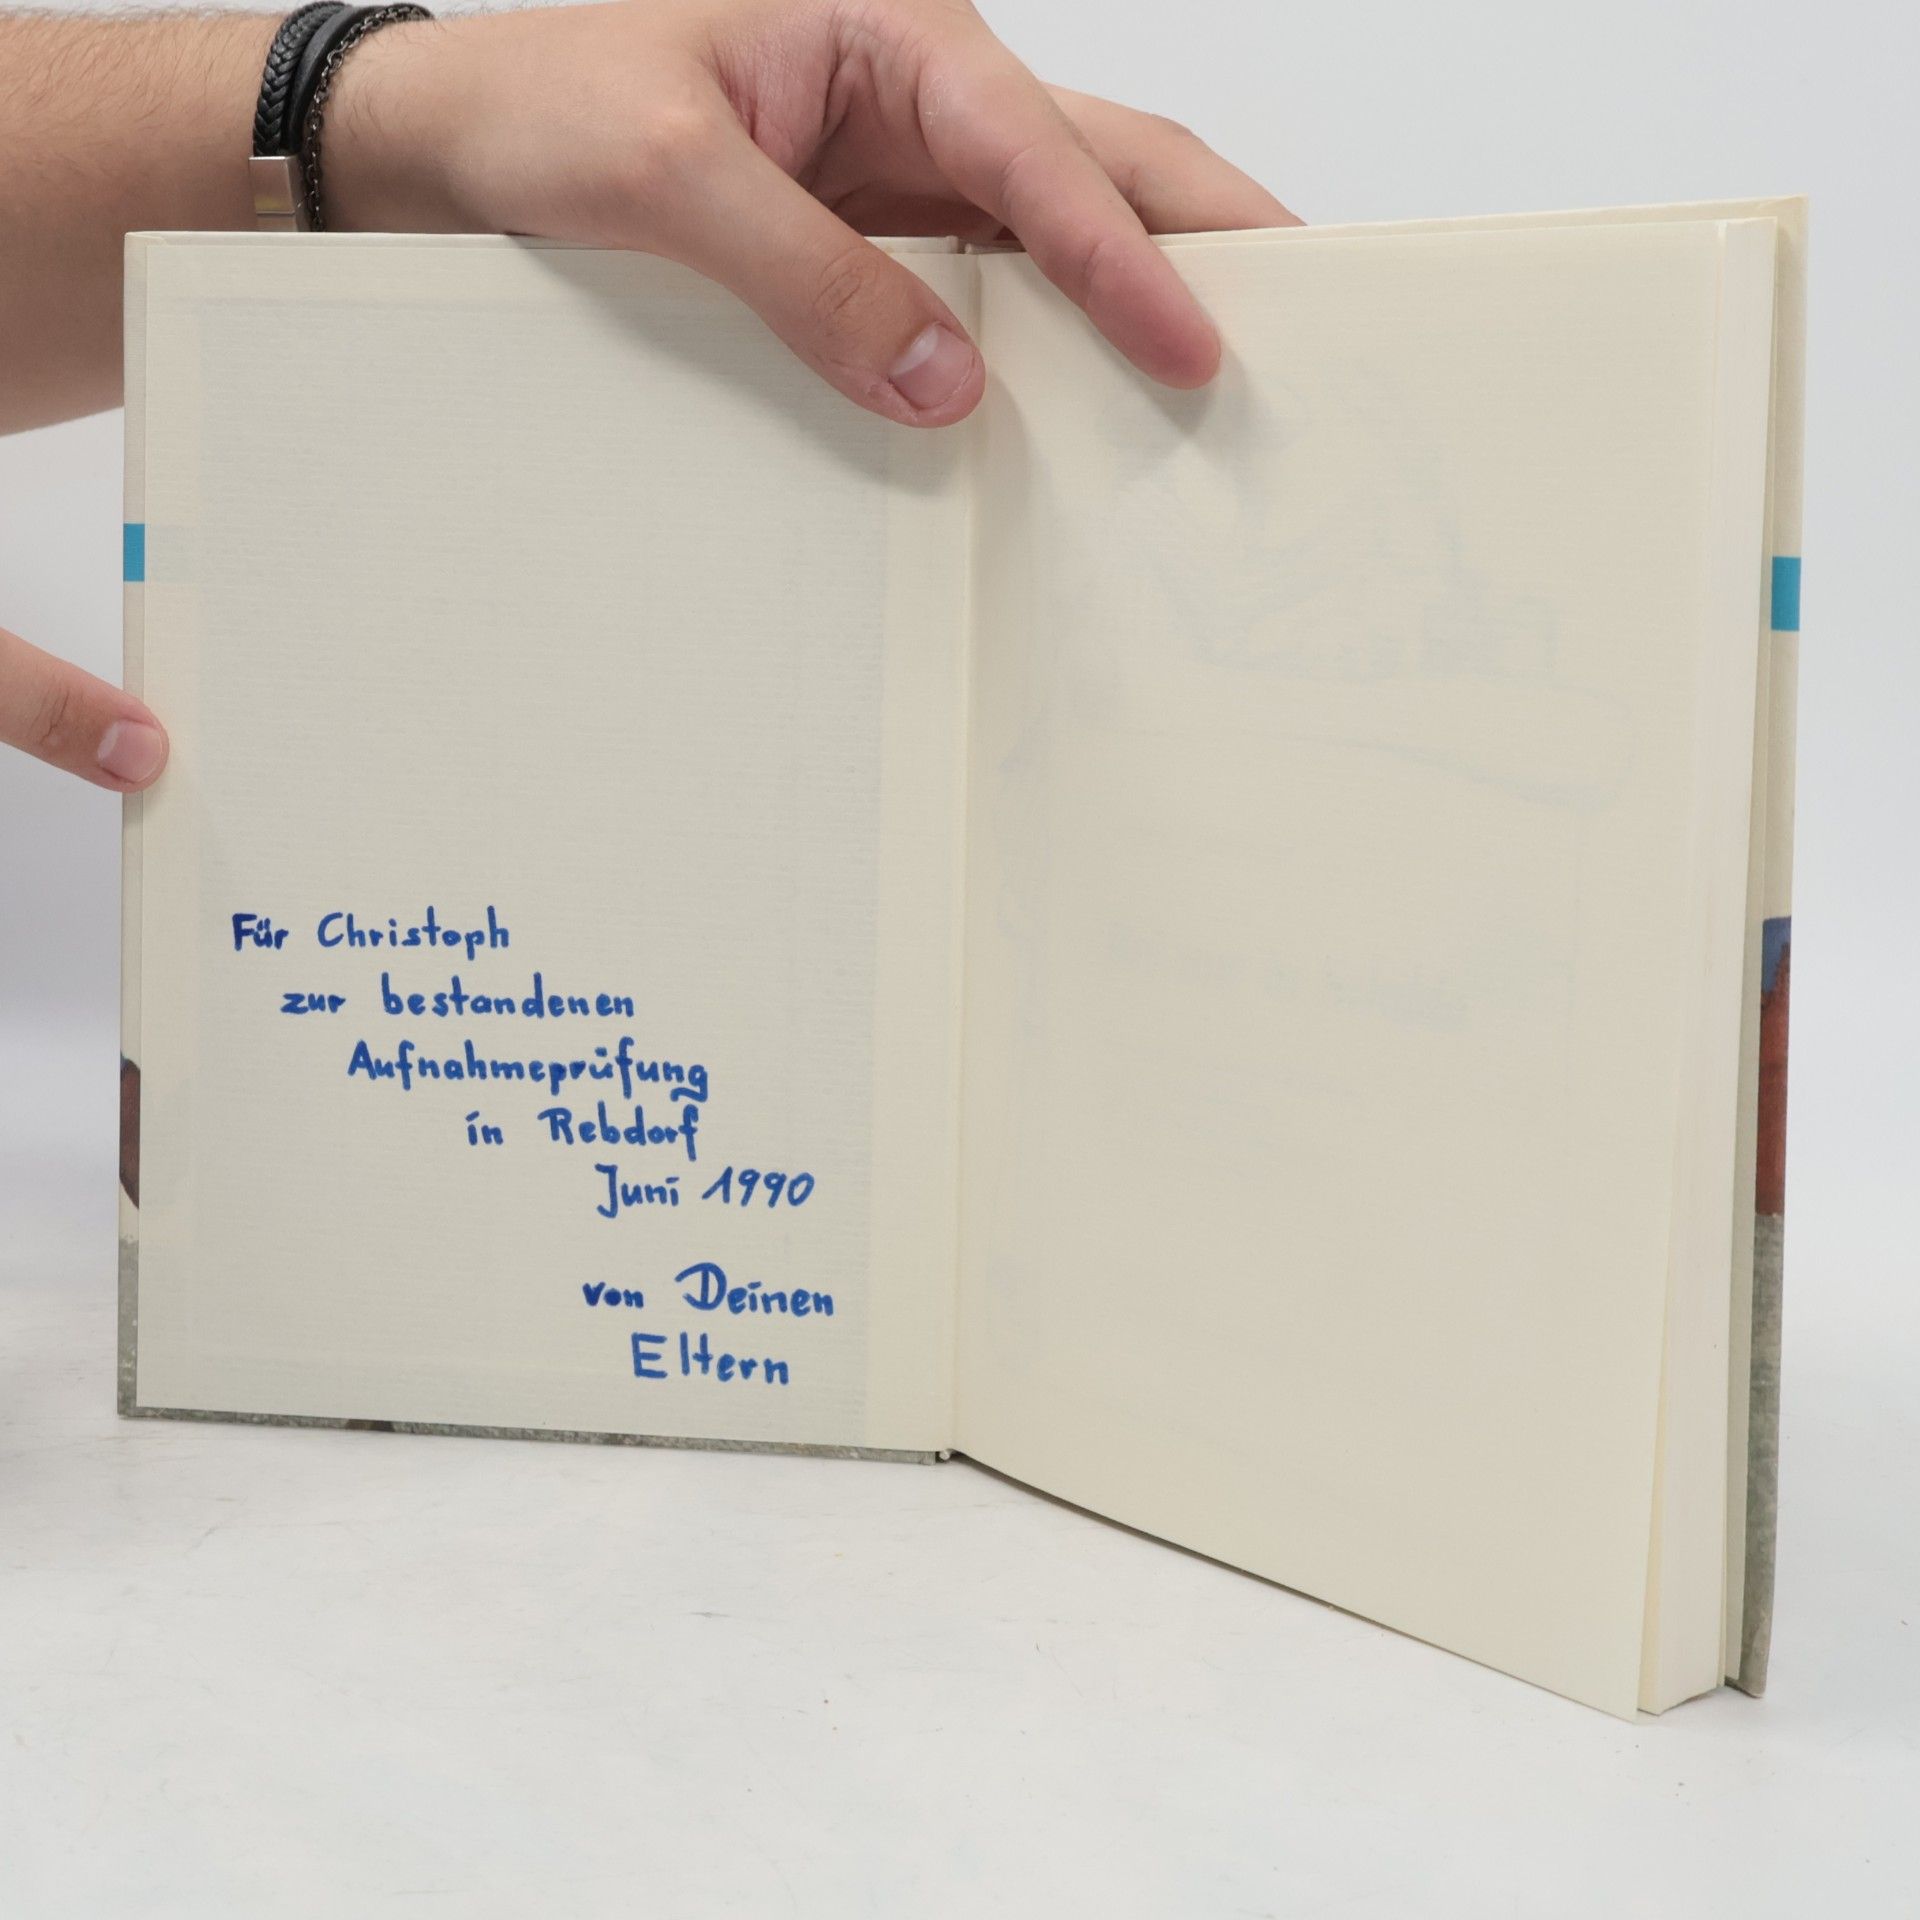 Für Christoph
zur bestandenen
Aufnahmeprüfung
in Rebdorf
Juni 1990
von Deinen
Eltern